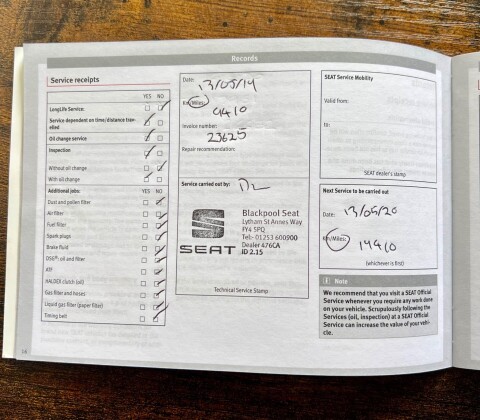 Records
Service receipts
YES NO
LongLife Service:
Service dependent on time/distance trav-
elled
Oil change service
Inspection
Without oil change
With oil change
Additional jobs: YES NO
Dust and pollen filter
Air filter
Fuel filter
Spark plugs
Brake fluid
DSG®: oil and filter
ATF
HALDEX clutch (oil)
Gas filter and hoses
Liquid gas filter (paper filter)
Timing belt
Date:
13/05/19
Km/Miles:
9410
Invoice number:
23625
Repair recommendation:
Service carried out by:
SEAT
Blackpool Seat
Lytham St Annes Way
FY4 5PQ
Tel:- 01253 600900
Dealer 476CA
ID 2.15
Technical Service Stamp
SEAT Service Mobility
Valid from:
to:
SEAT dealer's stamp
Next Service to be carried out
Date: 13/05/20
Km/Miles: 19410
(whichever is first)
i Note
We recommend that you visit a SEAT Official
Service whenever you require any work done
on your vehicle. Scrupulously following the
Services (oil, inspection) at a SEAT Official
Service can increase the value of your vehi-
cle.